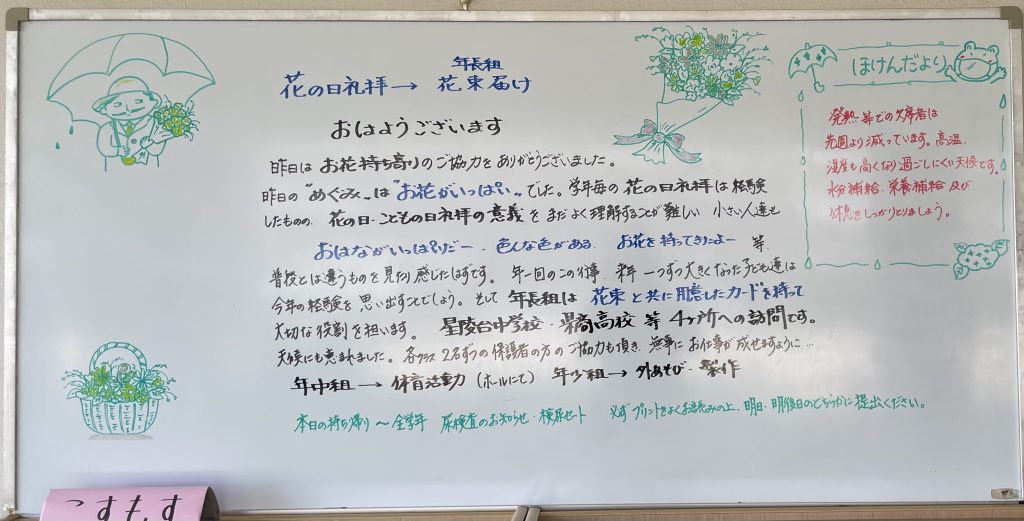 年長組
花の日礼拝→ 花束届け
おはようございます
昨日は お花持ち寄りのご協力をありがとうございました。
昨日の"めぐみ"は"お花がいっぱい"でした。学年毎の 花の日礼拝は 経験
したものの、花の日・こどもの日礼拝の意義を まだ よく理解することが難しい 小さい人達も
おはながいっぱいだー 、色んな色がある、 お花を持ってきたよー 等
普段とは違うものを見たり感じたはずです。 年一回のこの行事、来年 一つずつ大きくなった子ども達は
今年の経験を 思い出すことでしょう。そして 年長組は 花束 と共に用意したカードを持って
大切な役割を担います。 星陵台中学校・県商高校 等 4ヶ所への訪問です。
天候にも恵まれました。各クラス 2名ずつの保護者の方の ご協力も頂き、無事に お仕事が成せますように…
年中組 → 体育活動 (ホールにて) 年少組→ 外あそび・製作
本日の持ち帰り 〜 全学年 尿検査のお知らせ・検尿セット 必ずプリントをよくお読みの上、明日・明後日のどちらかに提出ください。
ほけんだより
発熱等での欠席者は
先週より減っています。高温、
湿度も高くなり過ごしにくい天候です。
水分補給、栄養補給 及び
休息をしっかりとりましょう。
こすもす